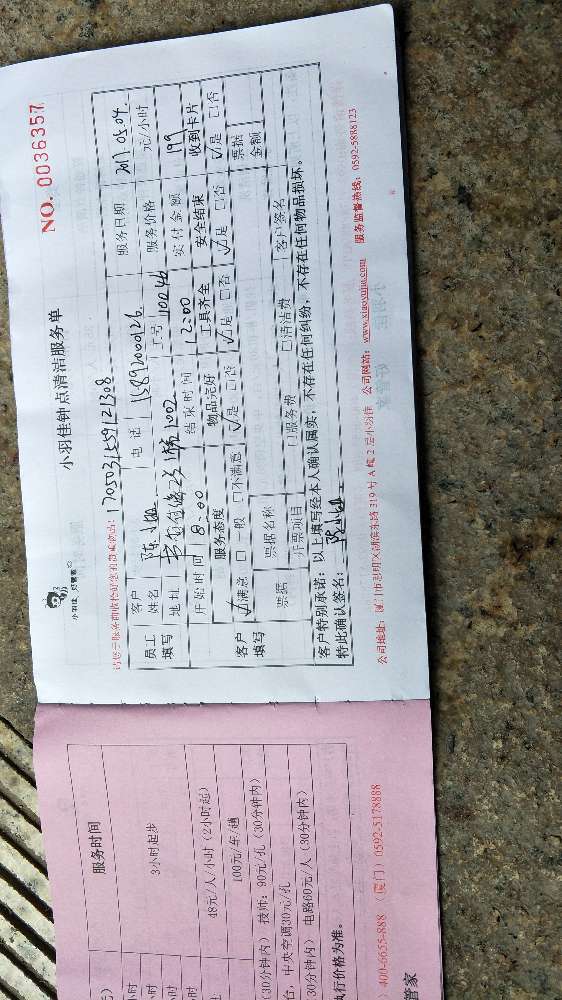 小羽佳 好管家
小羽佳钟点清洁服务单
NO. 0036357
1705031559121308
员工填写
客户姓名
电话 15892000126
服务日期 2017.05.04
地址
1002
工号 110046
服务价格 元/小时
开始时间 8:00
结束时间 12:00
实付金额 199
客户填写
服务态度 物品完好 工具齐全 安全结束 收到卡片
☑满意 □一般 □不满意 ☑是 □否 ☑是 □否 ☑是 □否 ☑是 □否
票据 票据名称 票据金额
开票项目 □服务费 □清洁费 客户签名
客户特别承诺:以上填写经本人确认属实,不存在任何纠纷,不存在任何物品损坏。
特此确认签名:
公司地址:厦门市思明区湖滨东路319号A幢2层小羽佳 公司网站:www.xiaoyujia.com 服务监督热线:0592-5888123
服务时间
3小时起步
48元/人/小时(2小时起)
100元/车/趟
(30分钟内) 技师:90元/孔(30分钟内)
台,中央空调30元/孔
30分钟内) 电路60元/人(30分钟内)
执行价格为准。
400-6655-888 (厦门)0592-5178888
管家